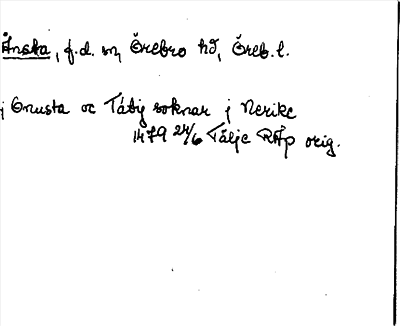 Ånsta, f.d. sn, Örebro hd, Öreb. l.
j Onusta oc Täby soknar j Nerike
1479 24/6 Tälje RAp orig.